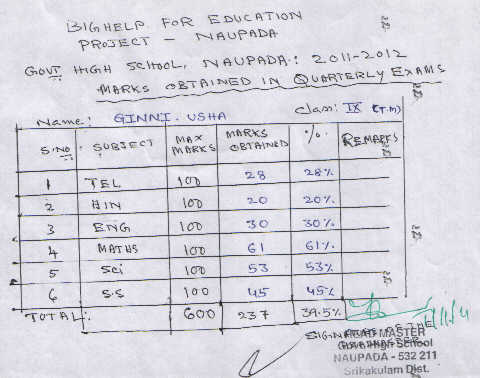 BIGHELP FOR EDUCATION
PROJECT - NAUPADA
GOVT HIGH SCHOOL, NAUPADA: 2011-2012
MARKS OBTAINED IN QUARTERLY EXAMS
Name: GINNI. USHA Class: IX (T.m)
S.NO SUBJECT MAX MARKS MARKS OBTAINED %. REMARKS
1 TEL 100 28 28%
2 HIN 100 20 20%
3 ENG 100 30 30%
4 MATHS 100 61 61%
5 Sci 100 53 53%
6 S.S 100 45 45%
TOTAL: 600 237 39.5%
SIGNATURE OF THE
HEAD MASTER
Govt High School
NAUPADA - 532 211
Srikakulam Dist.